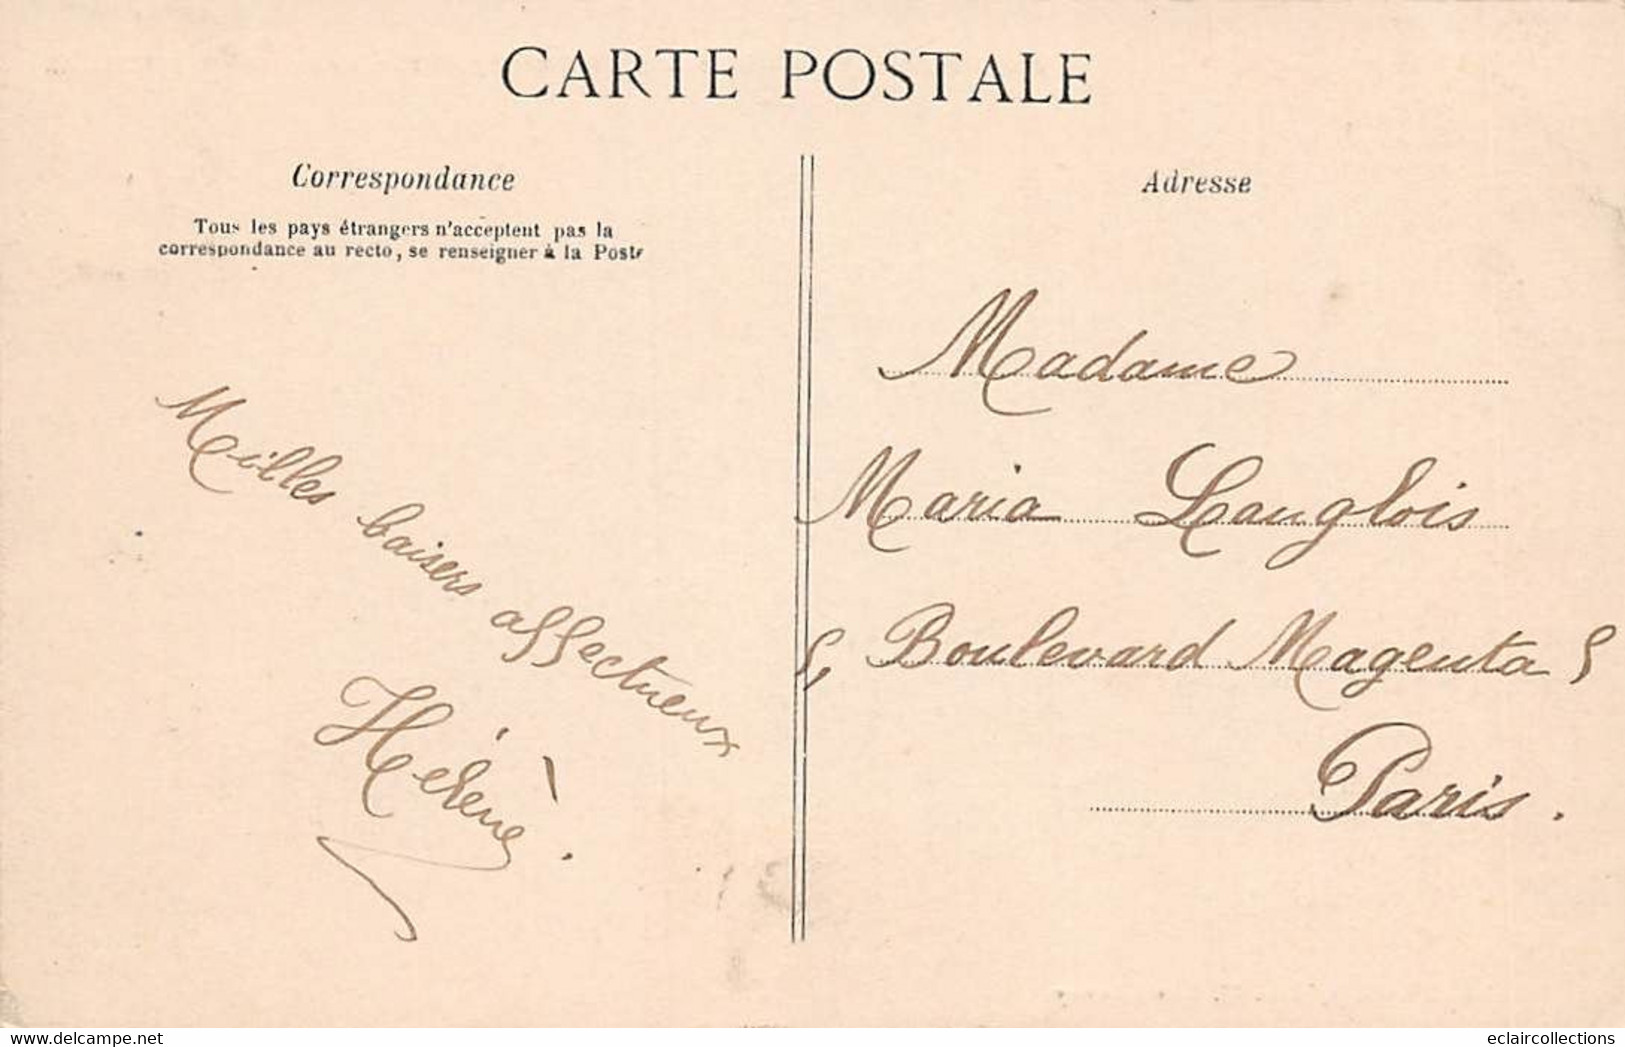 CARTE POSTALE
Correspondance
Tous les pays étrangers n'acceptent pas la
correspondance au recto, se renseigner à la Poste
Milles baisers affectueux
Hélène.
Adresse
Madame
Maria Langlois
5, Boulevard Magenta 5
Paris.
www.delcampe.net
eclaircollections